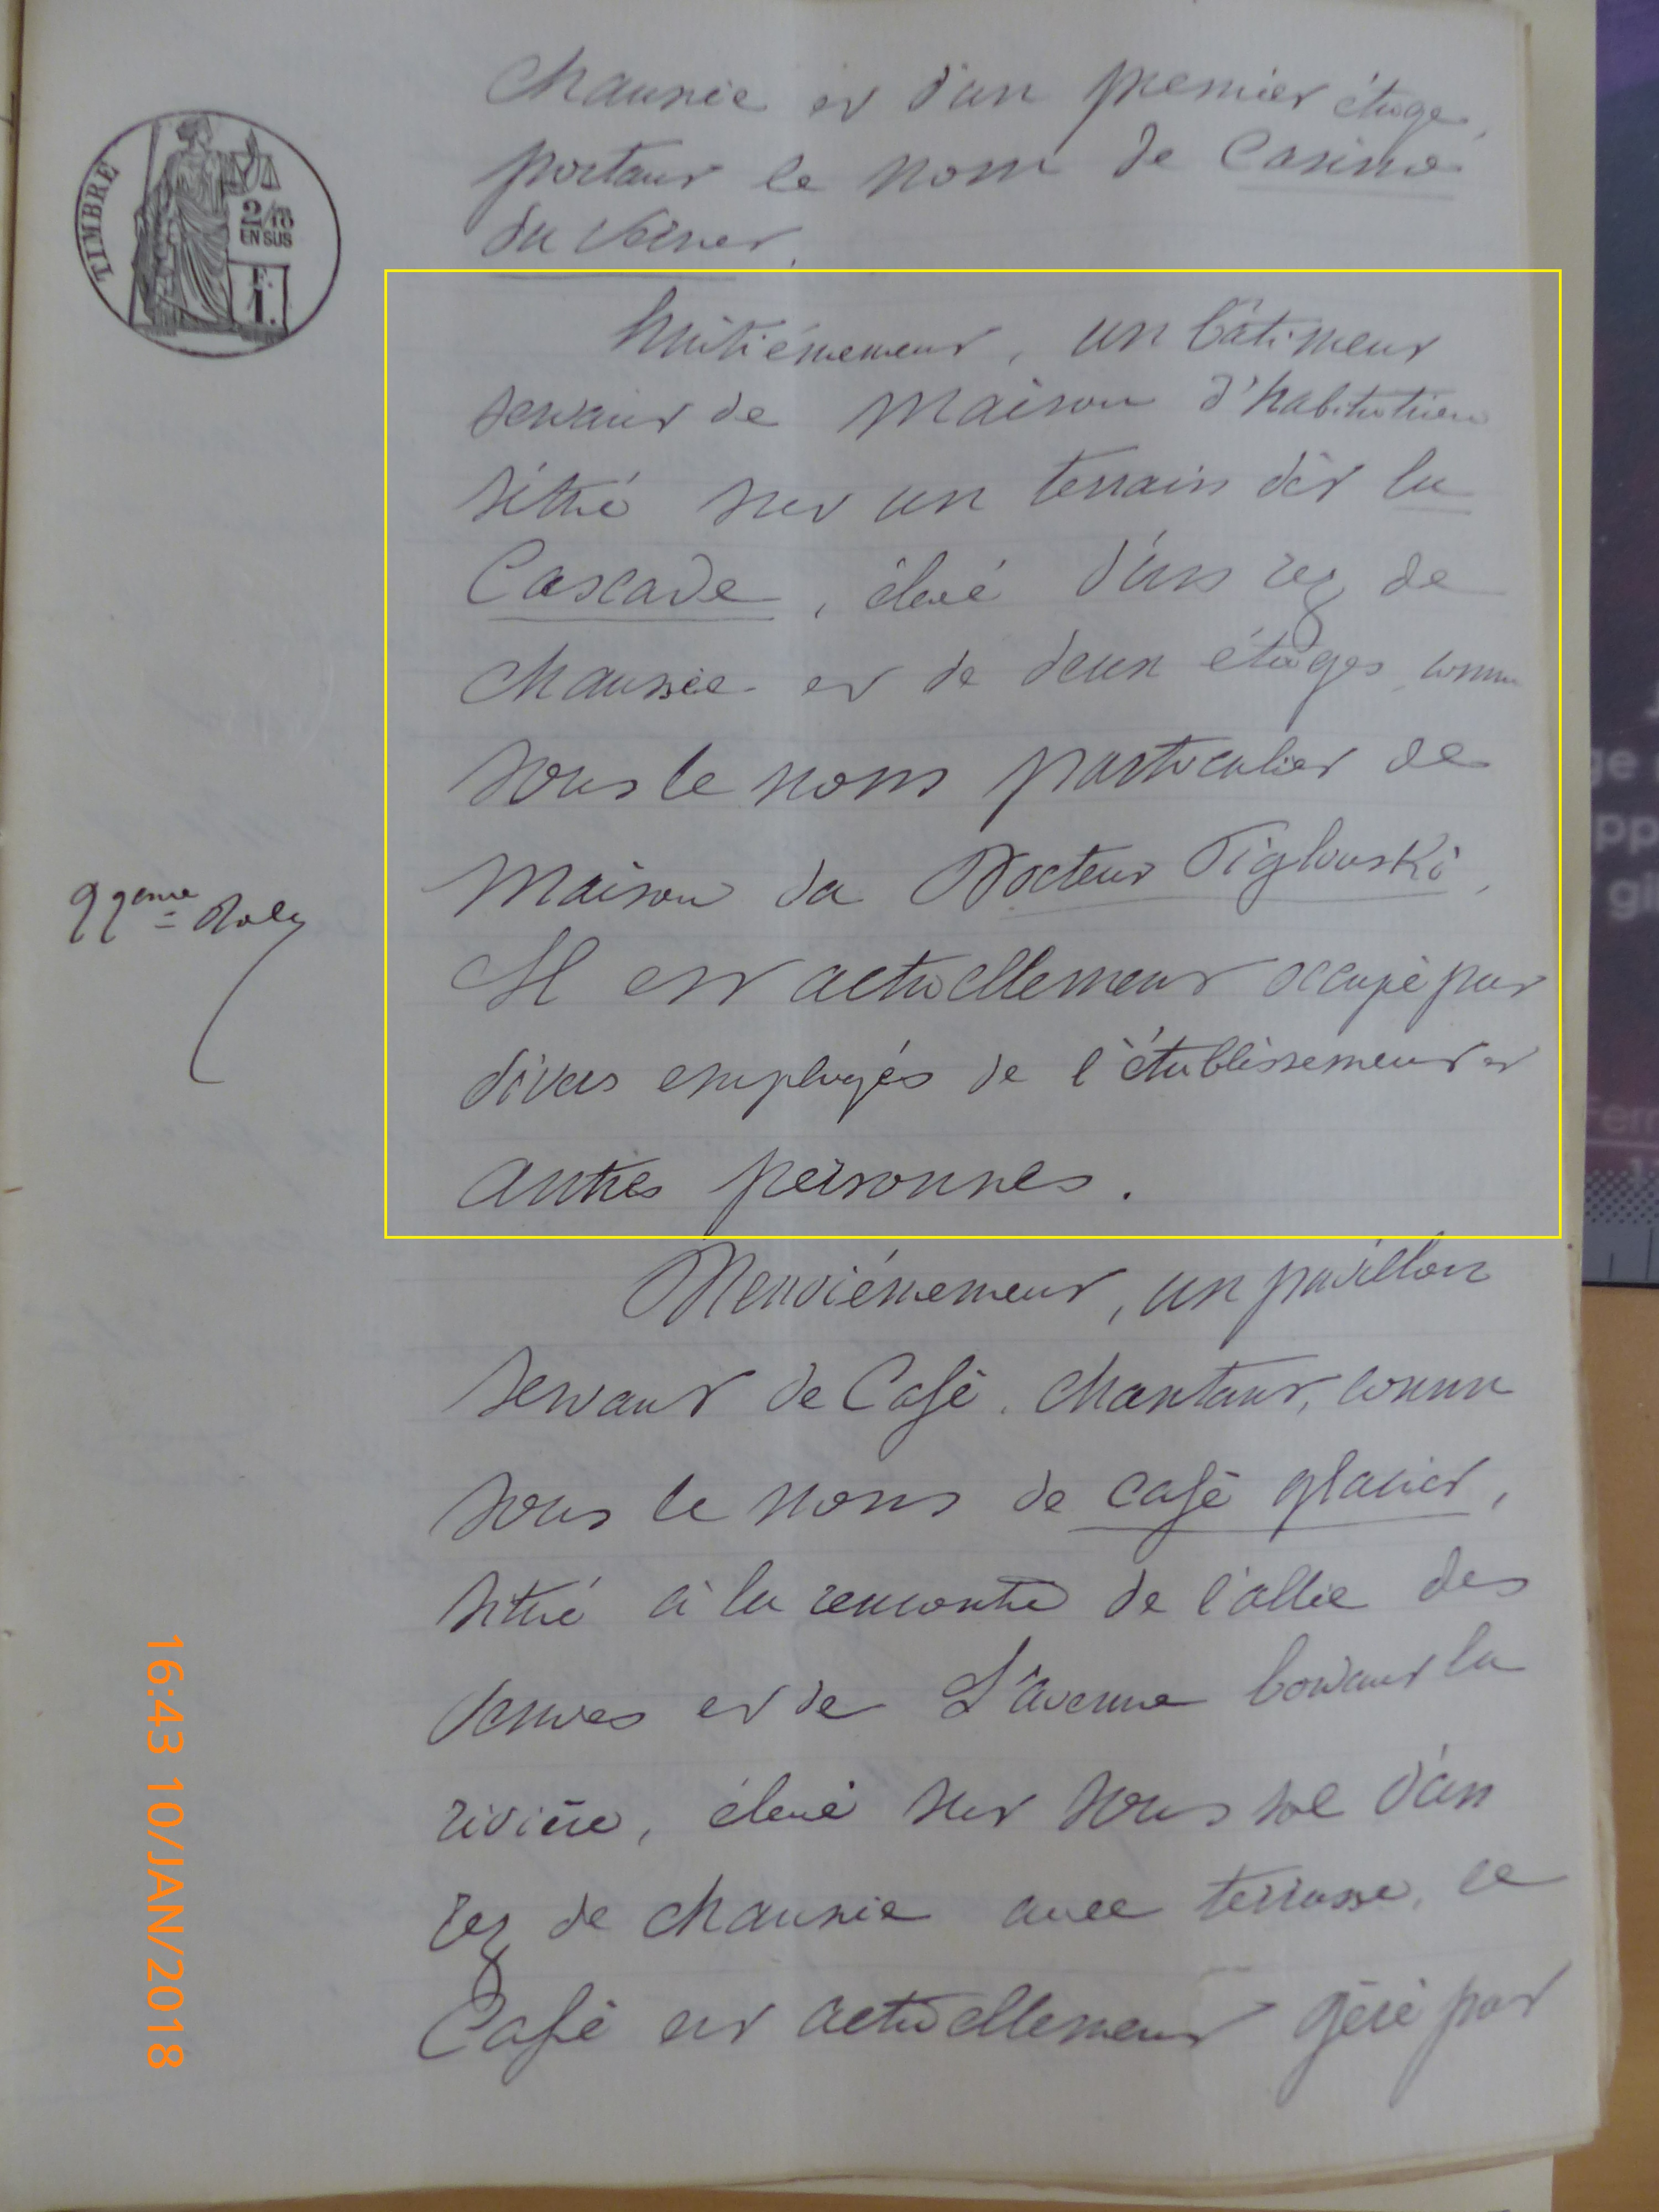 chaussée et d'un premier étage,
portant le nom de Casino
du Vernet.
TIMBRE
2/10
EN SUS
F.
1.
huitièmement, un bâtiment
servant de Maison d'habitation
situé sur un terrain dit la
Cascade, élevé d'un rez de
chaussée et de deux étages, connu
sous le nom particulier de
Maison du Docteur Piglowski,
Il est actuellement occupé par
divers employés de l'établissement et
autres personnes.
Neuvièmement, un pavillon
servant de Café chantant, connu
sous le nom de café glacier,
situé à la rencontre de l'allée des
Veuves et de L'avenue bordant la
rivière, élevé sur sous sol d'un
rez de chaussée avec terrasse, ce
Café est actuellement géré par
16:43 10/JAN/2018